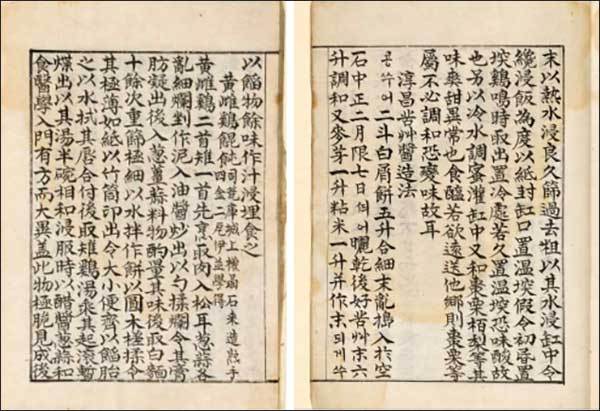 末以熱水浸良久篩過去粗以其水浸缸中令
纔浸飯為度以紙封缸口置溫堗假令初昏置
堗鷄鳴時取出置冷處若久置溫堗恐味酸故
也另以冷水調蜜灌缸中又和棗栗栢梨等其
味爽甜異常也食醢若欲遠送他鄉則棗栗等
屬不必調和恐變味故耳
淳昌苦艸醬造法
콩쑤어二斗白屑餠五升合細末亂搗入於空
石中正二月限七日띄여曬乾後好苦艸末六
升調和又麥芽一升粘米一升并作末되게쑤
以餡物餘味作汁浸埋食之
黃雌鷄餛飩 城上權石來造熟手
四金二尼伊並學得
黃雌鷄二首雉一首先烹取肉入松耳葱蒜各
亂細爛剉作泥入油醬炒出以勺揉爛令其膏
肪凝出後入葱薑蒜料物酌量其味後取白麵
十餘次重篩極細以水拌作餠以圓木極揉令
其極薄如紙以竹筒印出令大小便齊以餡胎
之以水拭其唇合付後取雉鷄湯乘其起滾暫
煠出以其湯半碗相和浸服時以醋醬葱蒜和
食醫學入門有方而大異蓋此物極脆見成後